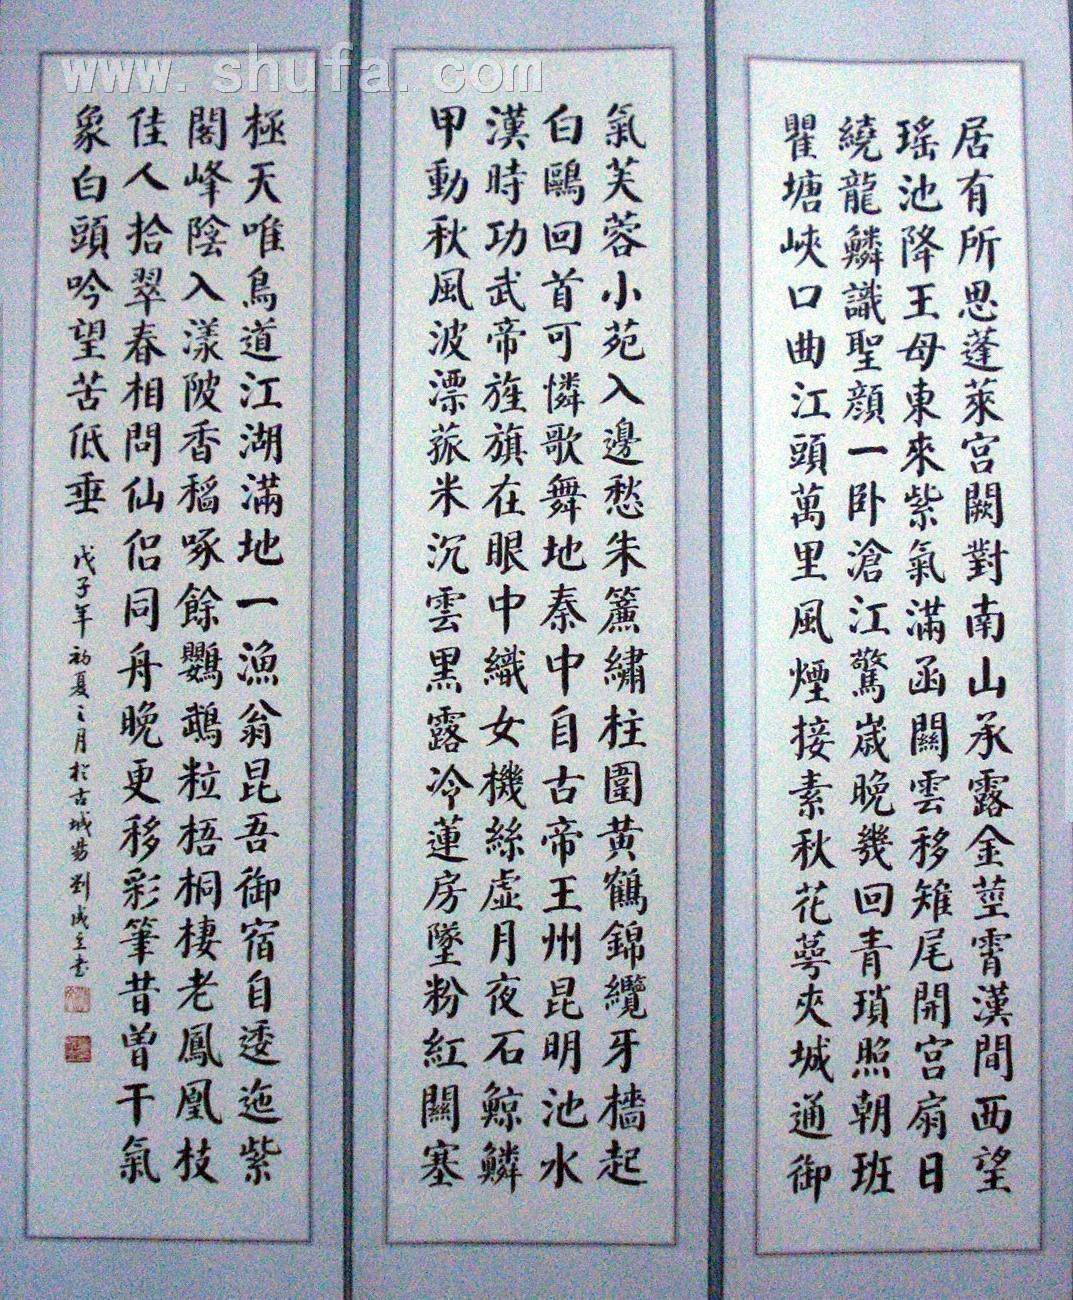 www.shufa.com
居有所思蓬萊宮闕對南山承露金莖霄漢間西望
瑤池降王母東來紫氣滿函關雲移雉尾開宮扇日
繞龍鱗識聖顏一卧滄江驚歲晚幾回青瑣照朝班
瞿塘峽口曲江頭萬里風煙接素秋花萼夾城通御
氣芙蓉小苑入邊愁朱簾繡柱圍黃鶴錦纜牙檣起
白鷗回首可憐歌舞地秦中自古帝王州昆明池水
漢時功武帝旌旗在眼中織女機絲虛月夜石鯨鱗
甲動秋風波漂菰米沉雲黑露冷蓮房墜粉紅關塞
極天唯鳥道江湖滿地一漁翁昆吾御宿自逶迤紫
閣峰陰入漾陂香稻啄餘鸚鵡粒梧桐棲老鳳凰枝
佳人拾翠春相問仙侶同舟晚更移彩筆昔曾干氣
象白頭吟望苦低垂 戊子年初夏之月於古城劉成書